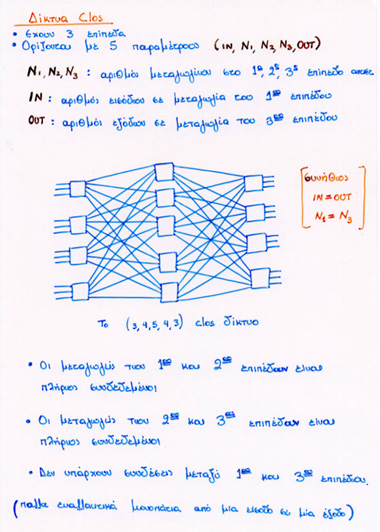 Δίκτυα Clos
• Έχουν 3 επίπεδα
• Ορίζονται με 5 παραμέτρους (IN, N1, N2, N3, OUT)
N1, N2, N3 : αριθμοί μεταγωγέων στο 1ο, 2ο, 3ο επίπεδο
IN : αριθμός εισόδων σε μεταγωγέα του 1ου επιπέδου
OUT : αριθμός εξόδων σε μεταγωγέα του 3ου επιπέδου
συνήθως
IN = OUT
N1 = N3
Το (3,4,5,4,3) clos δίκτυο
• Οι μεταγωγείς των 1ου και 2ου επιπέδων είναι
πλήρως συνδεδεμένοι
• Οι μεταγωγείς των 2ου και 3ου επιπέδων είναι
πλήρως συνδεδεμένοι
• Δεν υπάρχουν συνδέσεις μεταξύ 1ου και 3ου επιπέδου.
(πολλά εναλλακτικά μονοπάτια από μία είσοδο σε μία έξοδο)